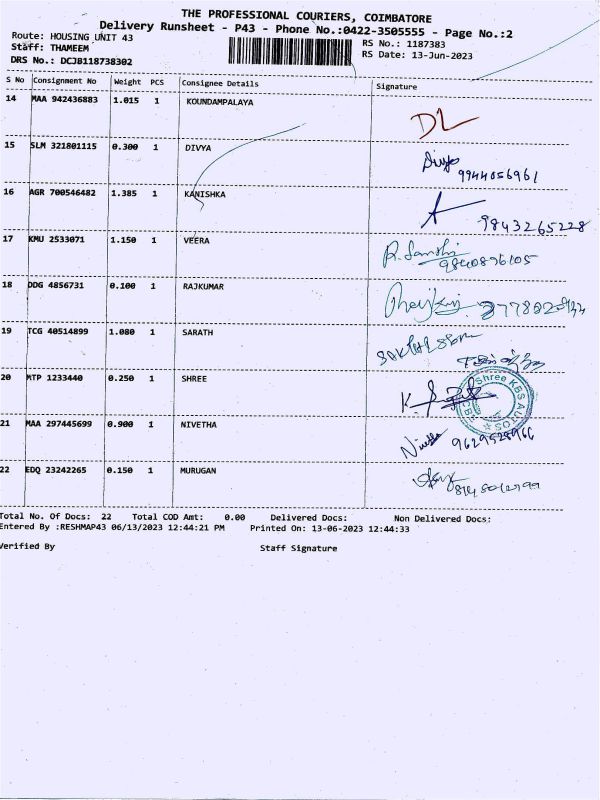 THE PROFESSIONAL COURIERS, COIMBATORE
Delivery Runsheet - P43 - Phone No.:0422-3505555 - Page No.:2
Route: HOUSING UNIT 43 RS No.: 1187383
Staff: THAMEEM RS Date: 13-Jun-2023
DRS No.: DCJB118738302
S No Consignment No Weight PCS Consignee Details Signature
14 MAA 942436883 1.015 1 KOUNDAMPALAYA DL
15 SLM 321801115 0.300 1 DIVYA Divya
9944056961
16 AGR 700546482 1.385 1 KANISHKA
9843265228
17 KMU 2533071 1.150 1 VEERA
18 DDG 4856731 0.100 1 RAJKUMAR
19 TCG 40514899 1.080 1 SARATH
20 MTP 1233440 0.250 1 SHREE
Shree KBS AUTOS
CBE
21 MAA 297445699 0.900 1 NIVETHA
22 EDQ 23242265 0.150 1 MURUGAN
Total No. Of Docs: 22 Total COD Amt: 0.00 Delivered Docs: Non Delivered Docs:
Entered By :RESHMAP43 06/13/2023 12:44:21 PM Printed On: 13-06-2023 12:44:33
Verified By Staff Signature